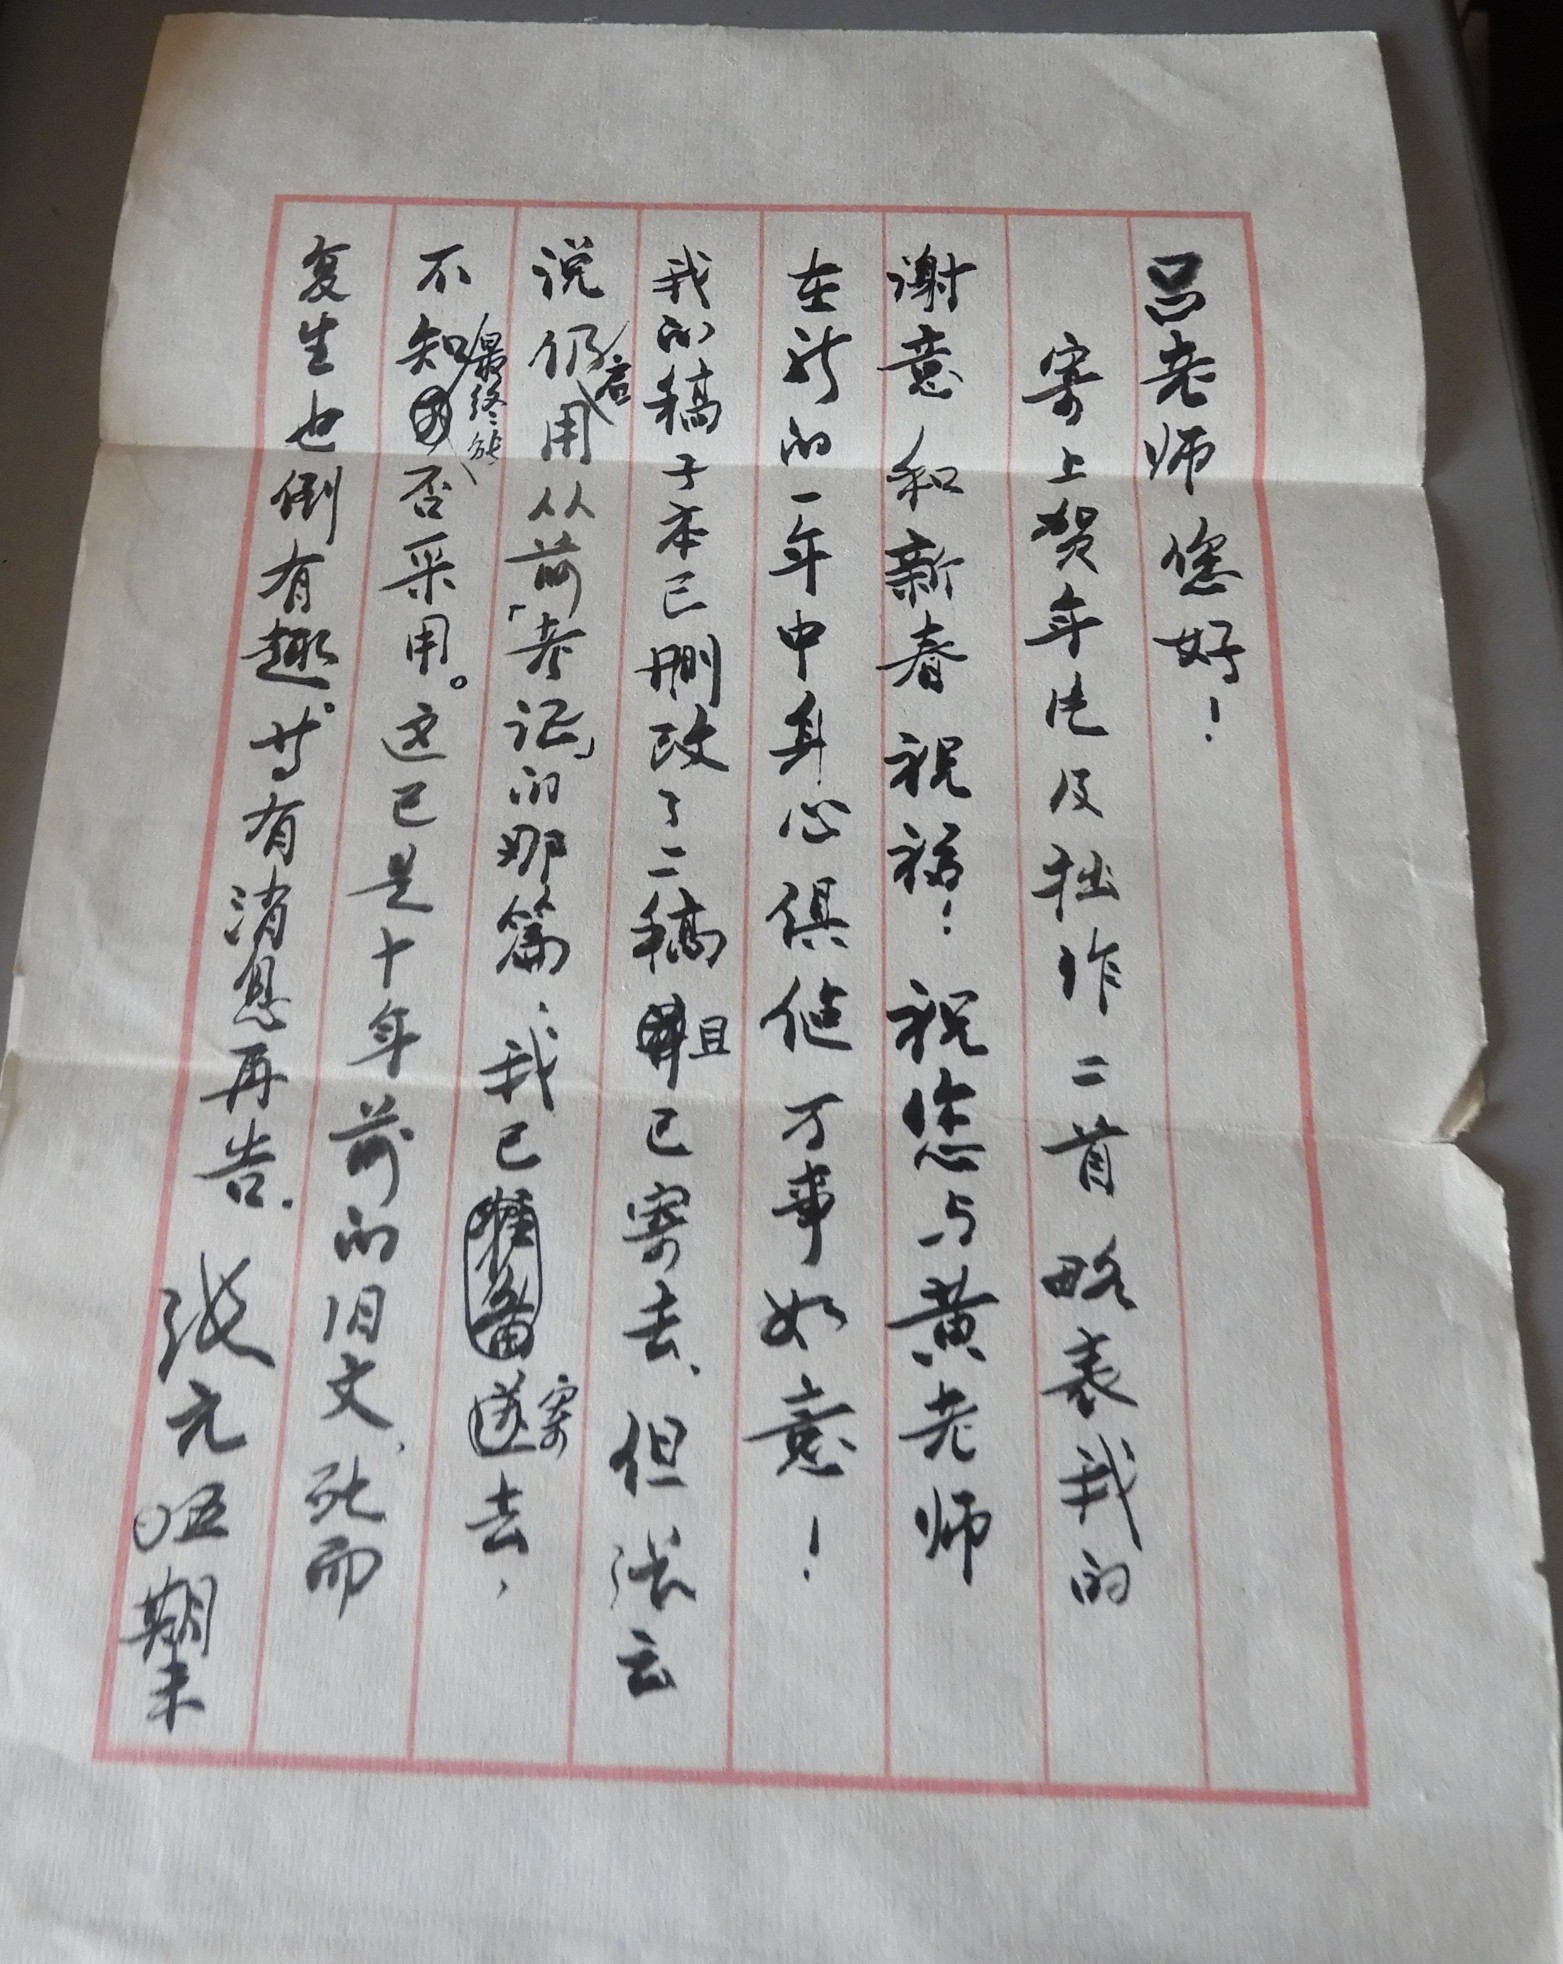 吕老师您好！
寄上贺年片及拙作二首略表我的
谢意和新春祝福！祝您与黄老师
在新的一年中身心俱健万事如意！
我的稿子本已删改了二稿且已寄去、但张云
说仍启用从前「考证」的那篇、我已寄去，
不知最终能否采用。这已是十年前的旧文、死而
复生也倒有趣。若有消息再告.